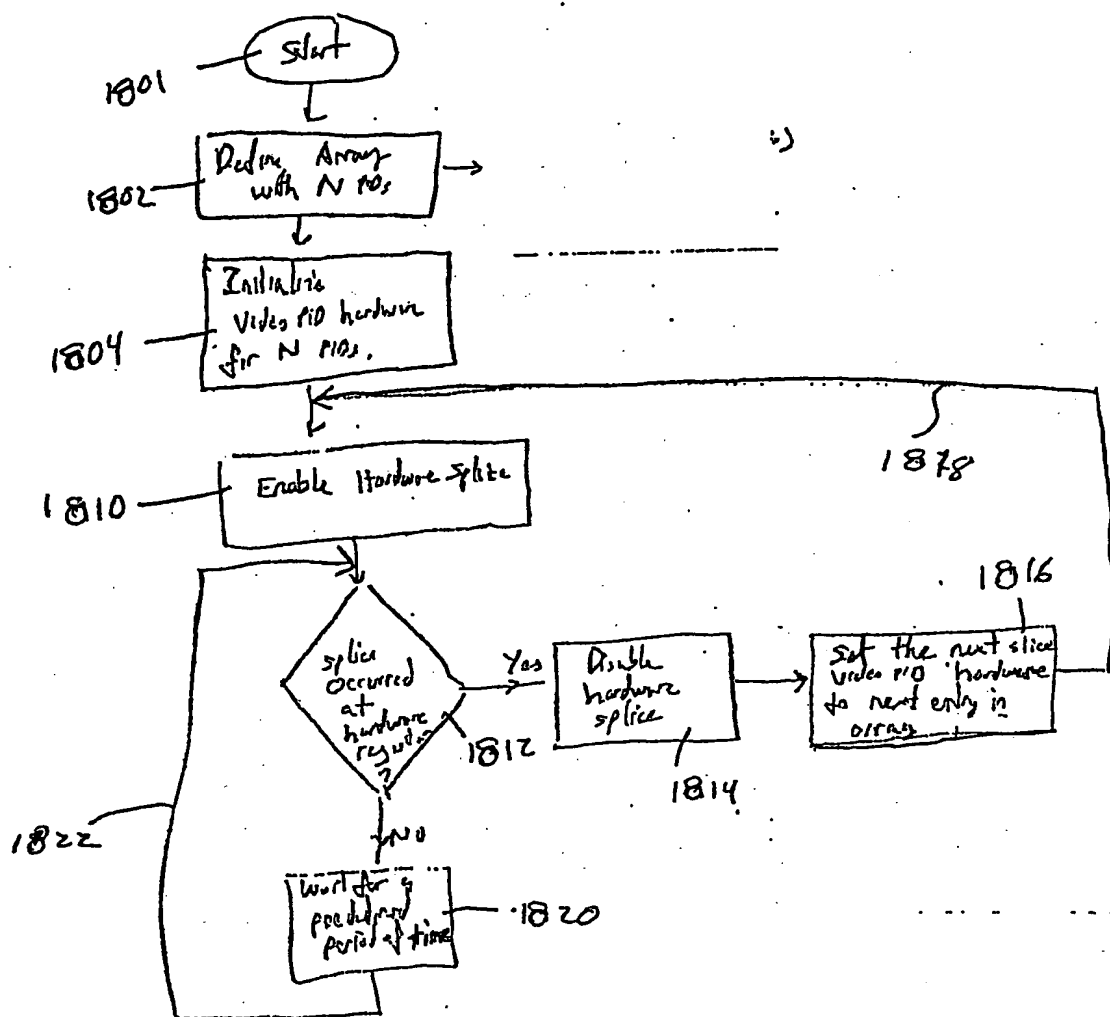 Start
1801
Define Array
with N PIDs
1802
Initialize
Video PID hardware
for N PIDs.
1804
1878
Enable Hardware Splice
1810
splice
occurred
at
hardware
1812
Yes
Disable
hardware
splice
1814
1816
Set the next slice
video PID hardware
to next entry in
array
NO
1822
Wait for a
period of time
1820